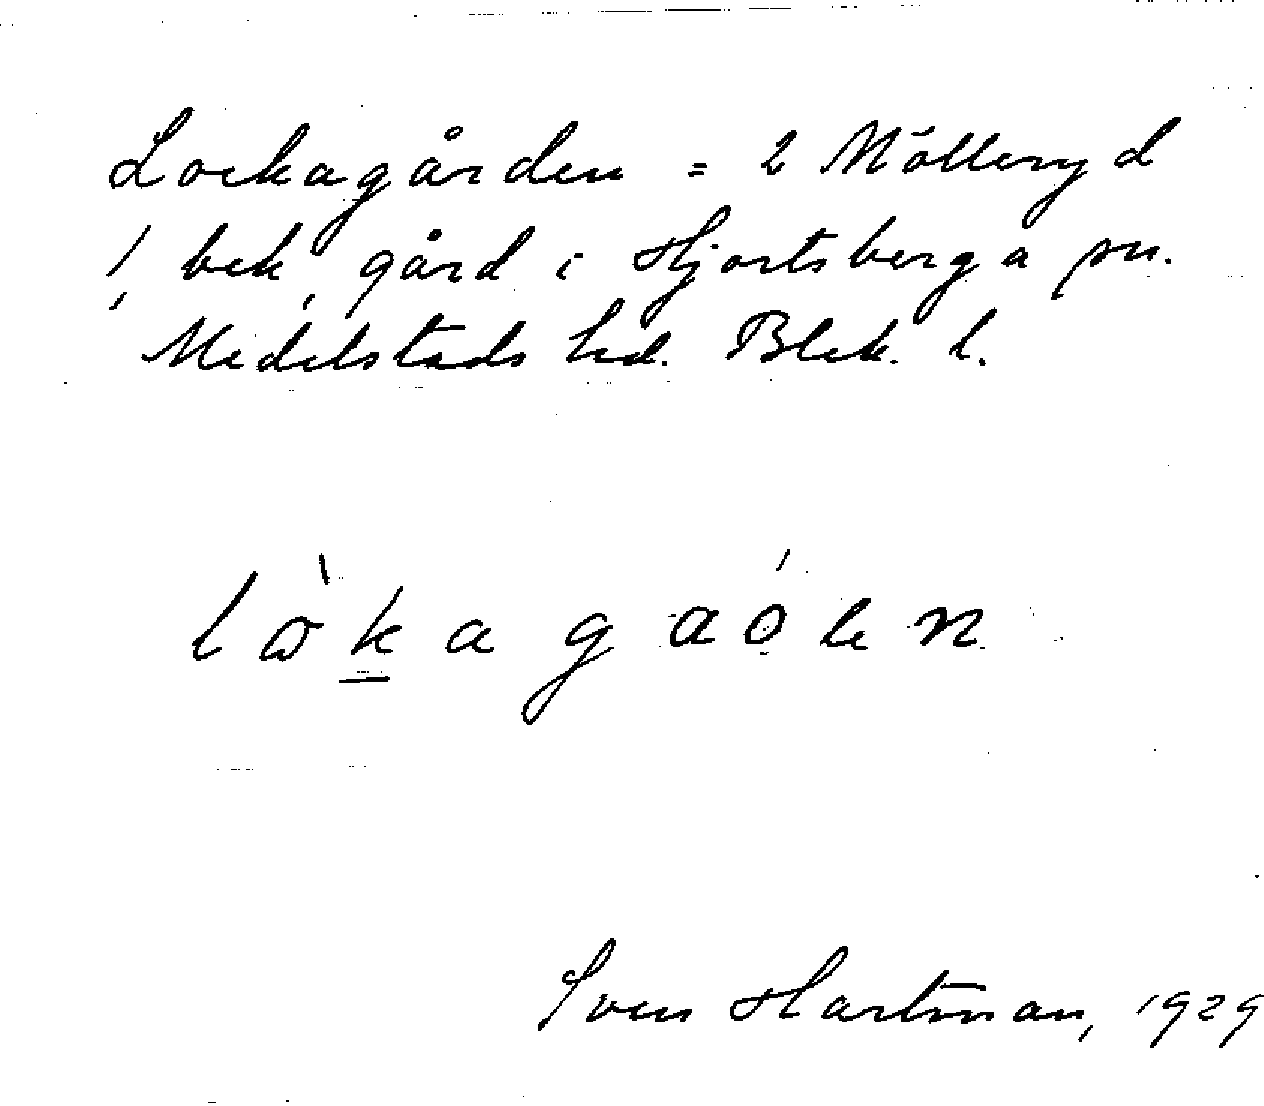 Lockagården = 2 Mölleryd
1, bek, gård i Hjortsberga sn.
Medelstads hd. Blek. l.
lòkagaólen
Sven Hartman, 1929